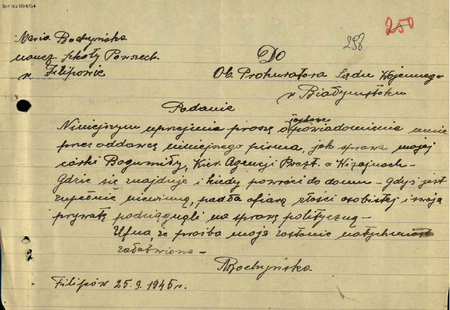 298
250
Maria Bochyńska
naucz. Szkoły Powszech.
w Filipowie
Do
Ob. Prokuratora Sądu Wojennego
w Białymstoku
Podanie
Niniejszym uprzejmie proszę o powiadomienie mnie
przez oddawcę niniejszego pisma, jak sprawa mojej
córki Bogumiły, Kier. Agencji Poczt. w Wiżajnach –
Gdzie się znajduje i kiedy powróci do domu – gdyż jest
zupełnie niewinną, padła ofiarą złości osobistej i swoją
prywatę podciągnęli na sprawę polityczną –
Ufna, że prośba moja zostanie natychmiast
załatwiona –
MBochyńska
Filipów 25.9.1945 r.